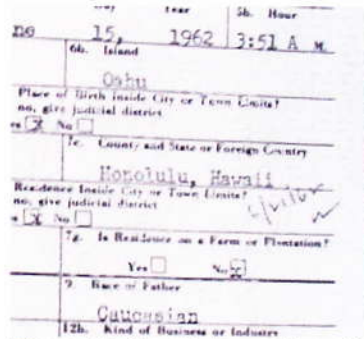 Year 5b. Hour
ne 15, 1962 3:51 A M.
6b. Island
Oahu
Place of Birth Inside City or Town Limits?
no, give judicial district
es X No
7c. County and State or Foreign Country
Honolulu, Hawaii
Residence Inside City or Town Limits?
no, give judicial district
s X No
7g. Is Residence on a Farm or Plantation?
Yes No X
9. Race of Father
Caucasian
12b. Kind of Business or Industry